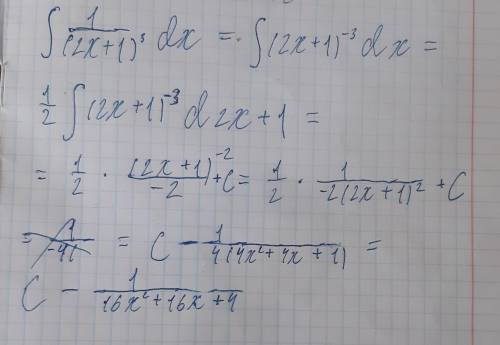 ∫ 1/(2x+1)³ dx = ∫(2x+1)⁻³ dx =
1/2 ∫(2x+1)⁻³ d 2x+1 =
= 1/2 · (2x+1)⁻²/-2 + C = 1/2 · 1/-2(2x+1)² + C
= = C - 1/4(4x²+4x+1) =
C - 1/16x²+16x+4